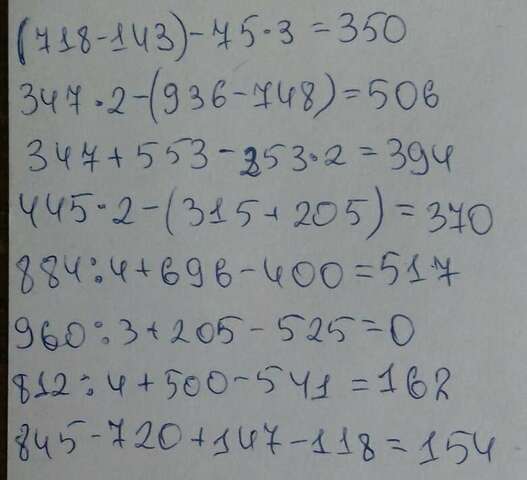 (718-143)-75·3=350
347·2-(936-748)=506
347+553-253·2=394
445·2-(315+205)=370
884:4+696-400=517
960:3+205-525=0
812:4+500-541=162
845-720+147-118=154